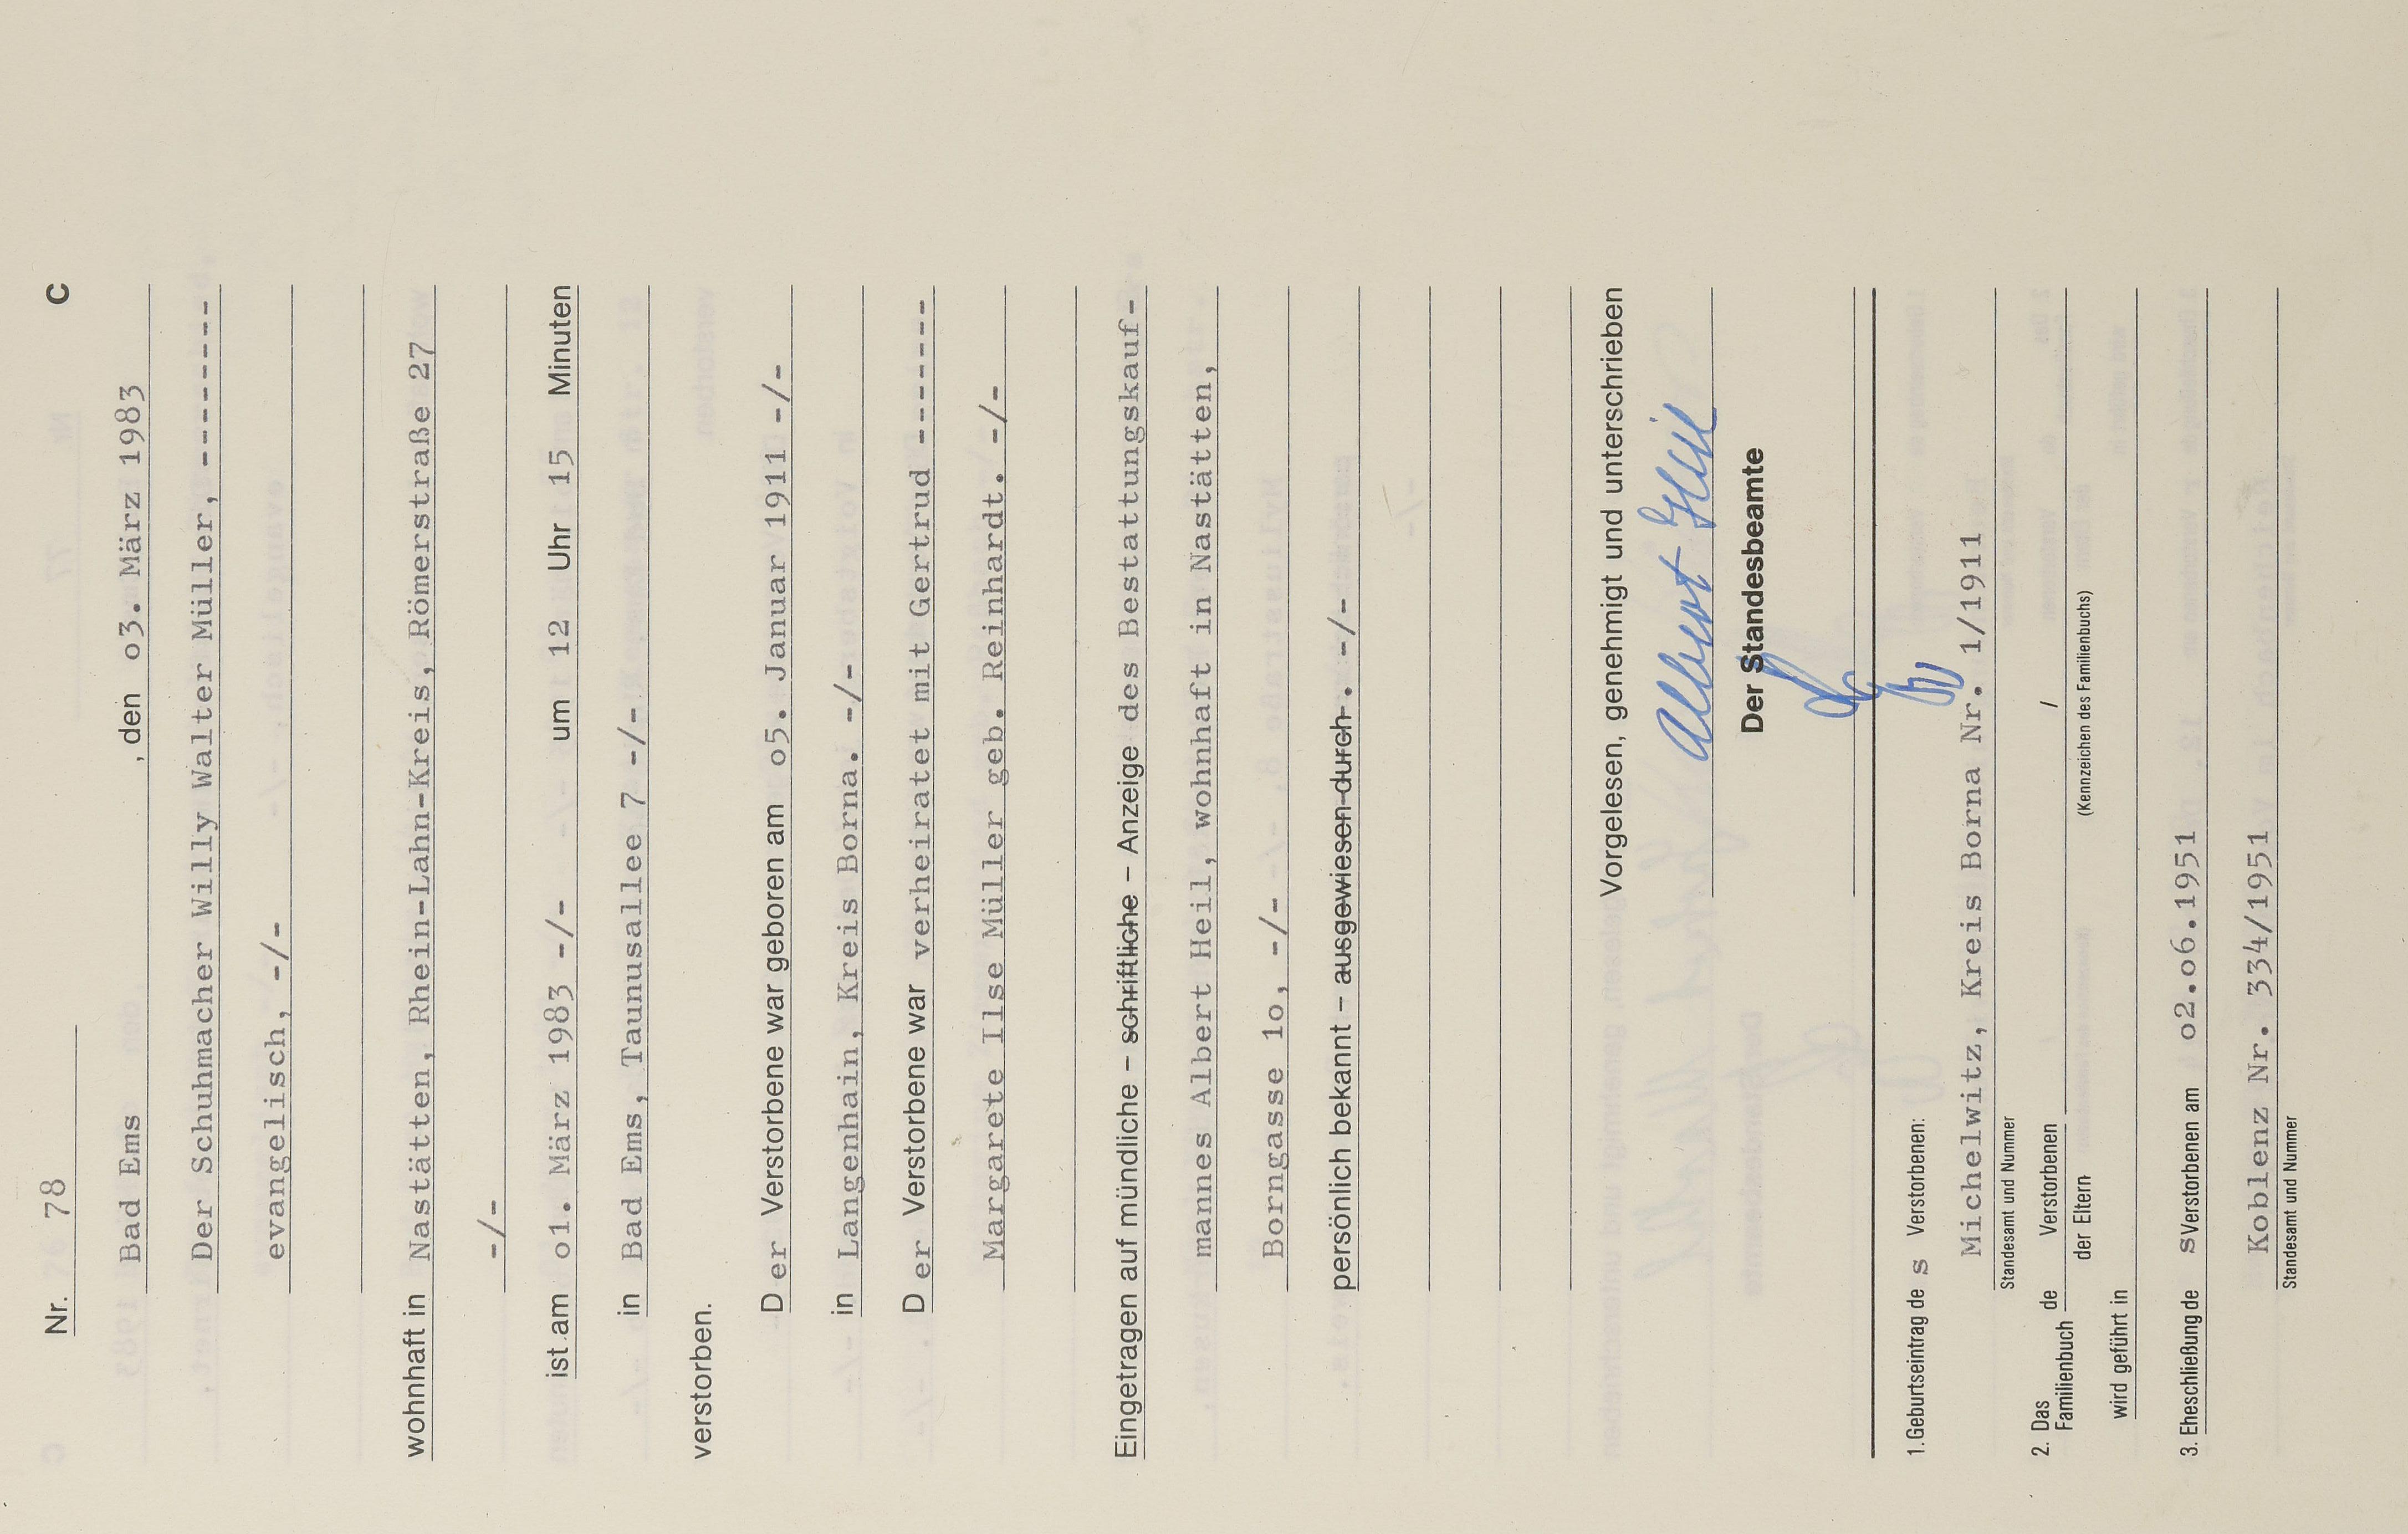 Nr. 78 C
Bad Ems , den o3. März 1983
Der Schuhmacher Willy Walter Müller, --------
evangelisch, -/-
wohnhaft in Nastätten, Rhein-Lahn-Kreis, Römerstraße 27
-/-
ist am o1. März 1983 -/- um 12 Uhr 15 Minuten
in Bad Ems, Taunusallee 7 -/-
verstorben.
Der Verstorbene war geboren am o5. Januar 1911 -/-
in Langenhain, Kreis Borna. -/-
Der Verstorbene war verheiratet mit Gertrud -------
Margarete Ilse Müller geb. Reinhardt. -/-
Eingetragen auf mündliche – schriftliche – Anzeige des Bestattungskauf-
mannes Albert Heil, wohnhaft in Nastätten,
Borngasse 1o, -/-
persönlich bekannt – ausgewiesen durch . -/-
Vorgelesen, genehmigt und unterschrieben
Albert Heil
Der Standesbeamte
1. Geburtseintrag de s Verstorbenen:
Michelwitz, Kreis Borna Nr. 1/1911
Standesamt und Nummer
2. Das Familienbuch de Verstorbenen /
der Eltern (Kennzeichen des Familienbuchs)
wird geführt in
3. Eheschließung de s Verstorbenen am o2.o6.1951
Koblenz Nr. 334/1951
Standesamt und Nummer